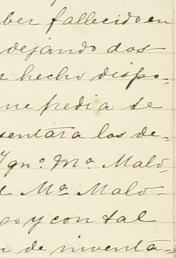 ber fallecido en
dejando dos
hecho dispo-
ne pedia se
sentára los de-
gnº. Mª Malo-
Mª Malo-
go y con tal
n de inventa-